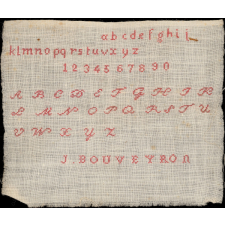 abcdefghij
klmnopqrstuvxyz
1234567890
A B C D E F G H I J K
L M N O P Q R S T U
V W X Y Z
J. BOUVEYRON